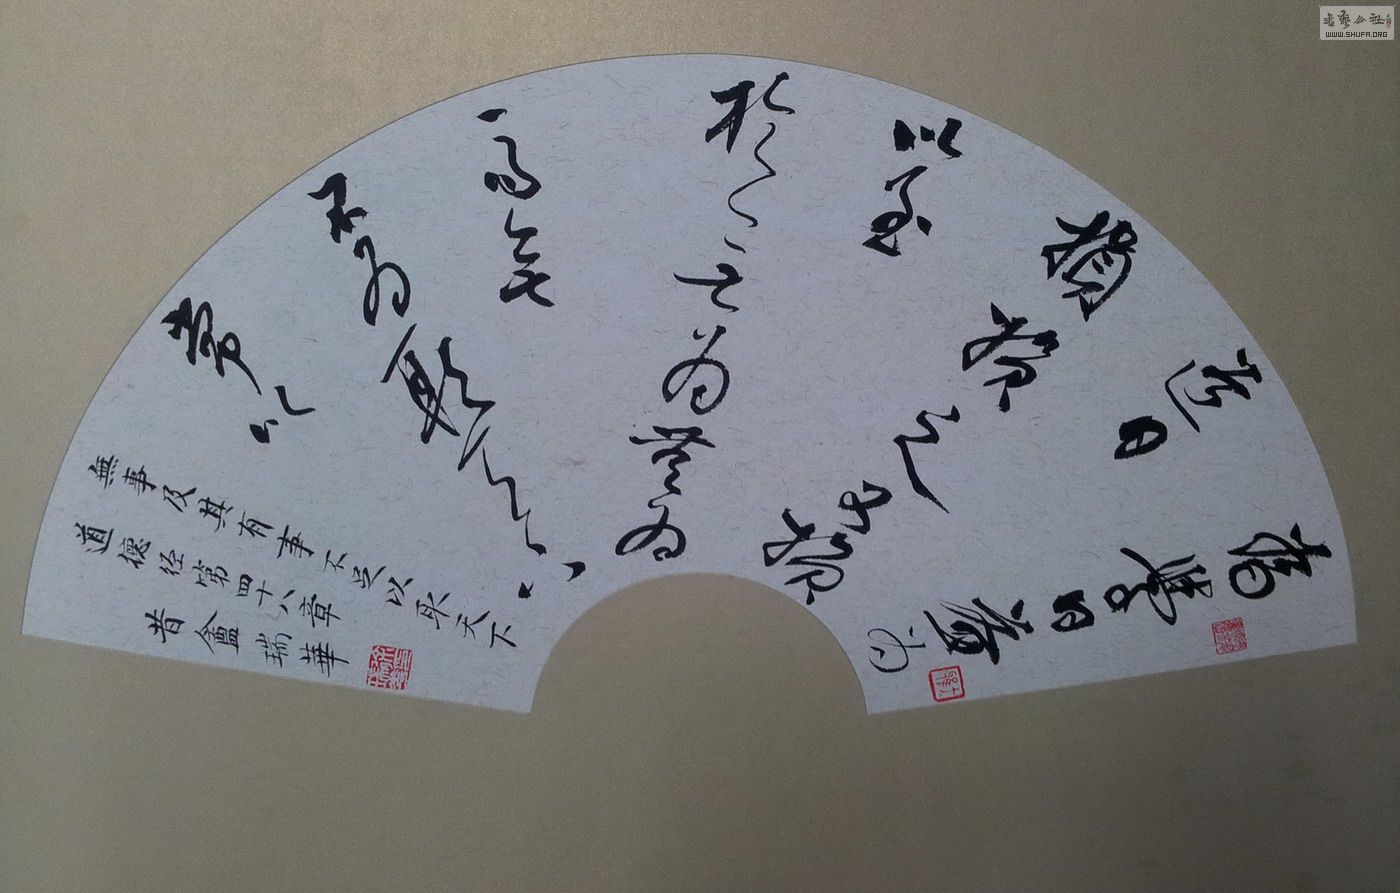 為學日益為
道日
損損之又損
以至
於无為無為
而無
不為取天下
常以
無事及其有事不足以取天下
道德径第四十八章
昔盦瑞華
書藝公社
WWW.SHUFA.ORG